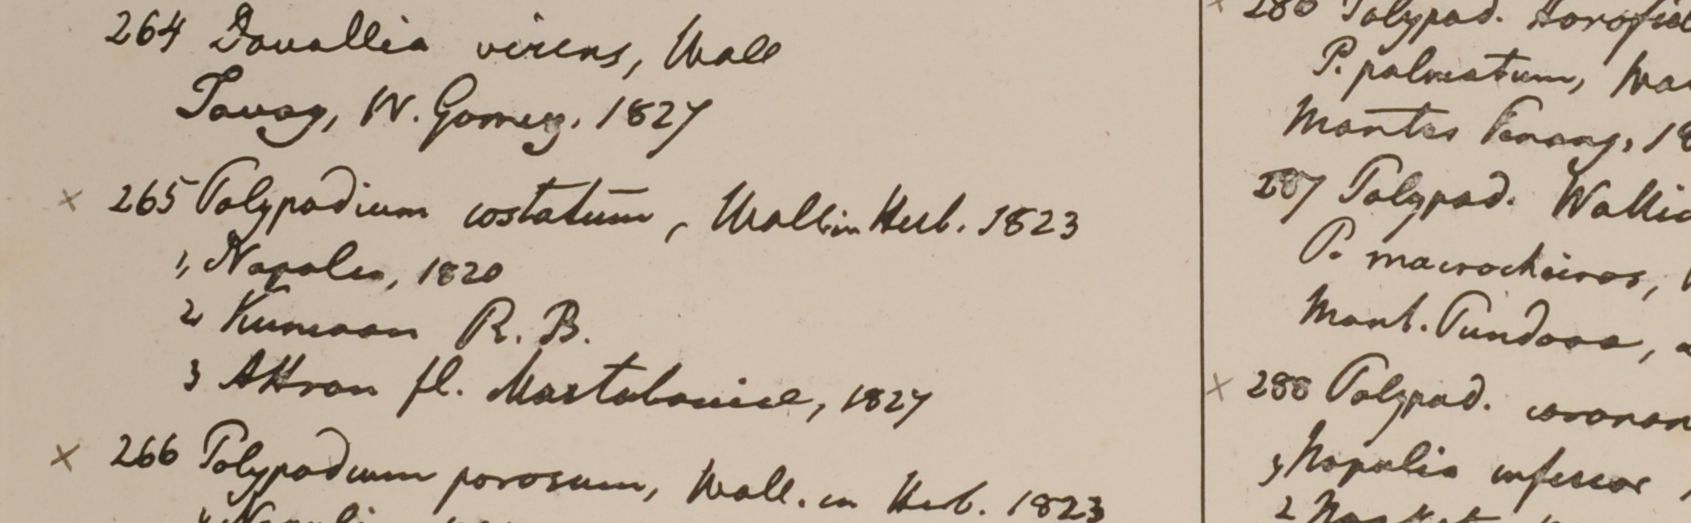 264 Davallia virens, Wall
Tavoy, W. Gomez. 1827
× 265 Polypodium costatum, Wall. in Herb. 1823
1, Napalia, 1820
2 Kumaon R. B.
3 Attran fl. Martabaniae, 1827
× 266 Polypodium porosum, Wall. in Herb. 1823
286 Polypod.
P. palmatum,
Montes Penang,
287 Polypod.
P. macrocheiros,
Mont. Pundooa,
× 288 Polypod.
Napalia inferior
2